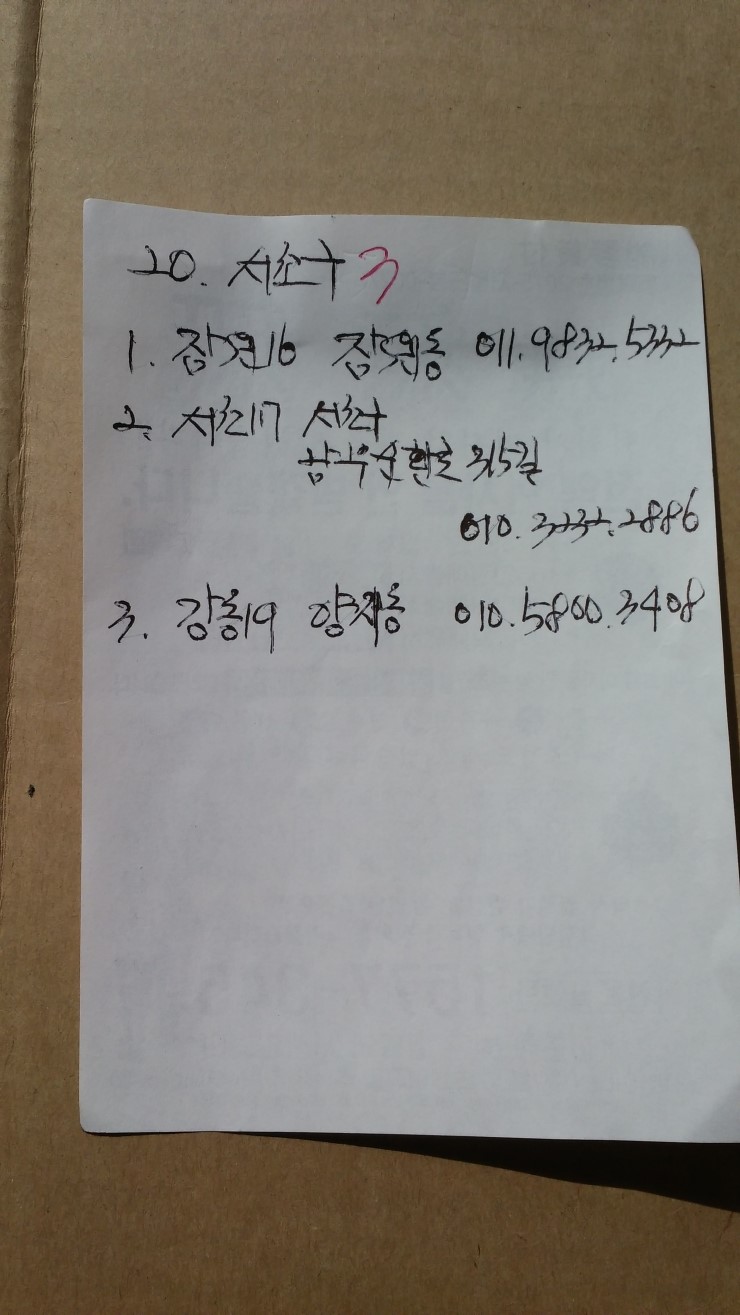 20. 서초구 3
1. 잠원16 잠원동 011.9832.5332
2. 서초17 서초
남부순환로 315길
010.3232.2886
3. 강동19 양재동 010.5800.3408